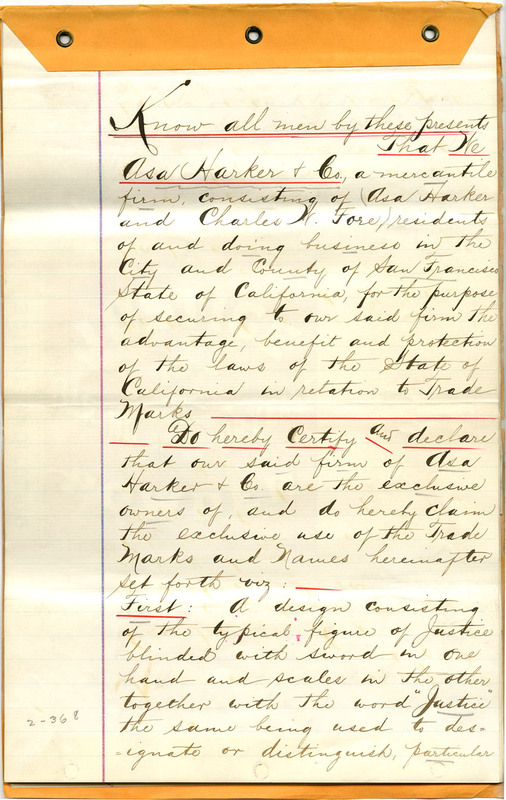 Know all men by these presents
That We
Asa Harker & Co., a mercantile
firm, consisting of (Asa Harker
and Charles W. Fore) residents
of and doing business in the
City and County of San Francisco
State of California, for the purpose
of securing to our said firm the
advantage, benefit and protection
of the laws of the State of
California in relation to Trade
Marks
Do hereby Certify and declare
that our said firm of Asa
Harker & Co. are the exclusive
owners of, and do hereby claim
the exclusive use of the Trade
Marks and Names hereinafter
set forth viz:
First: A design consisting
of the typical figure of Justice
blinded with sword in one
hand and scales in the other
together with the word "Justice"
the same being used to des=
=ignate or distinguish, particular
2-368